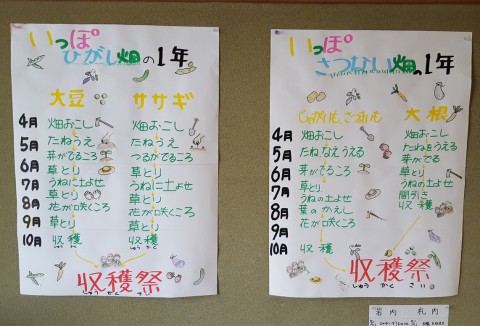 いっぽ
ひがし畑の1年
大豆 ササギ
4月 畑おこし 畑おこし
5月 たねうえ たねうえ
芽がでるころ つるがでるころ
6月 草とり 草とり
7月 うねに土よせ うねに土よせ
8月 花が咲くころ 花が咲くころ
9月 草とり 草とり
10月 収穫 収穫
収穫祭
しゅう かく さい
いっぽ
さつない畑の1年
大根
4月 畑おこし 畑おこし
5月 たね、なえうえる たねをうえる
6月 芽がでるころ 芽がでる
草とり 草とり
7月 うねの土よせ うねの土よせ
8月 葉のかえし 間引き
9月 花が咲くころ 収穫
10月 収穫
収穫祭
しゅう かく さい
岩内 札内